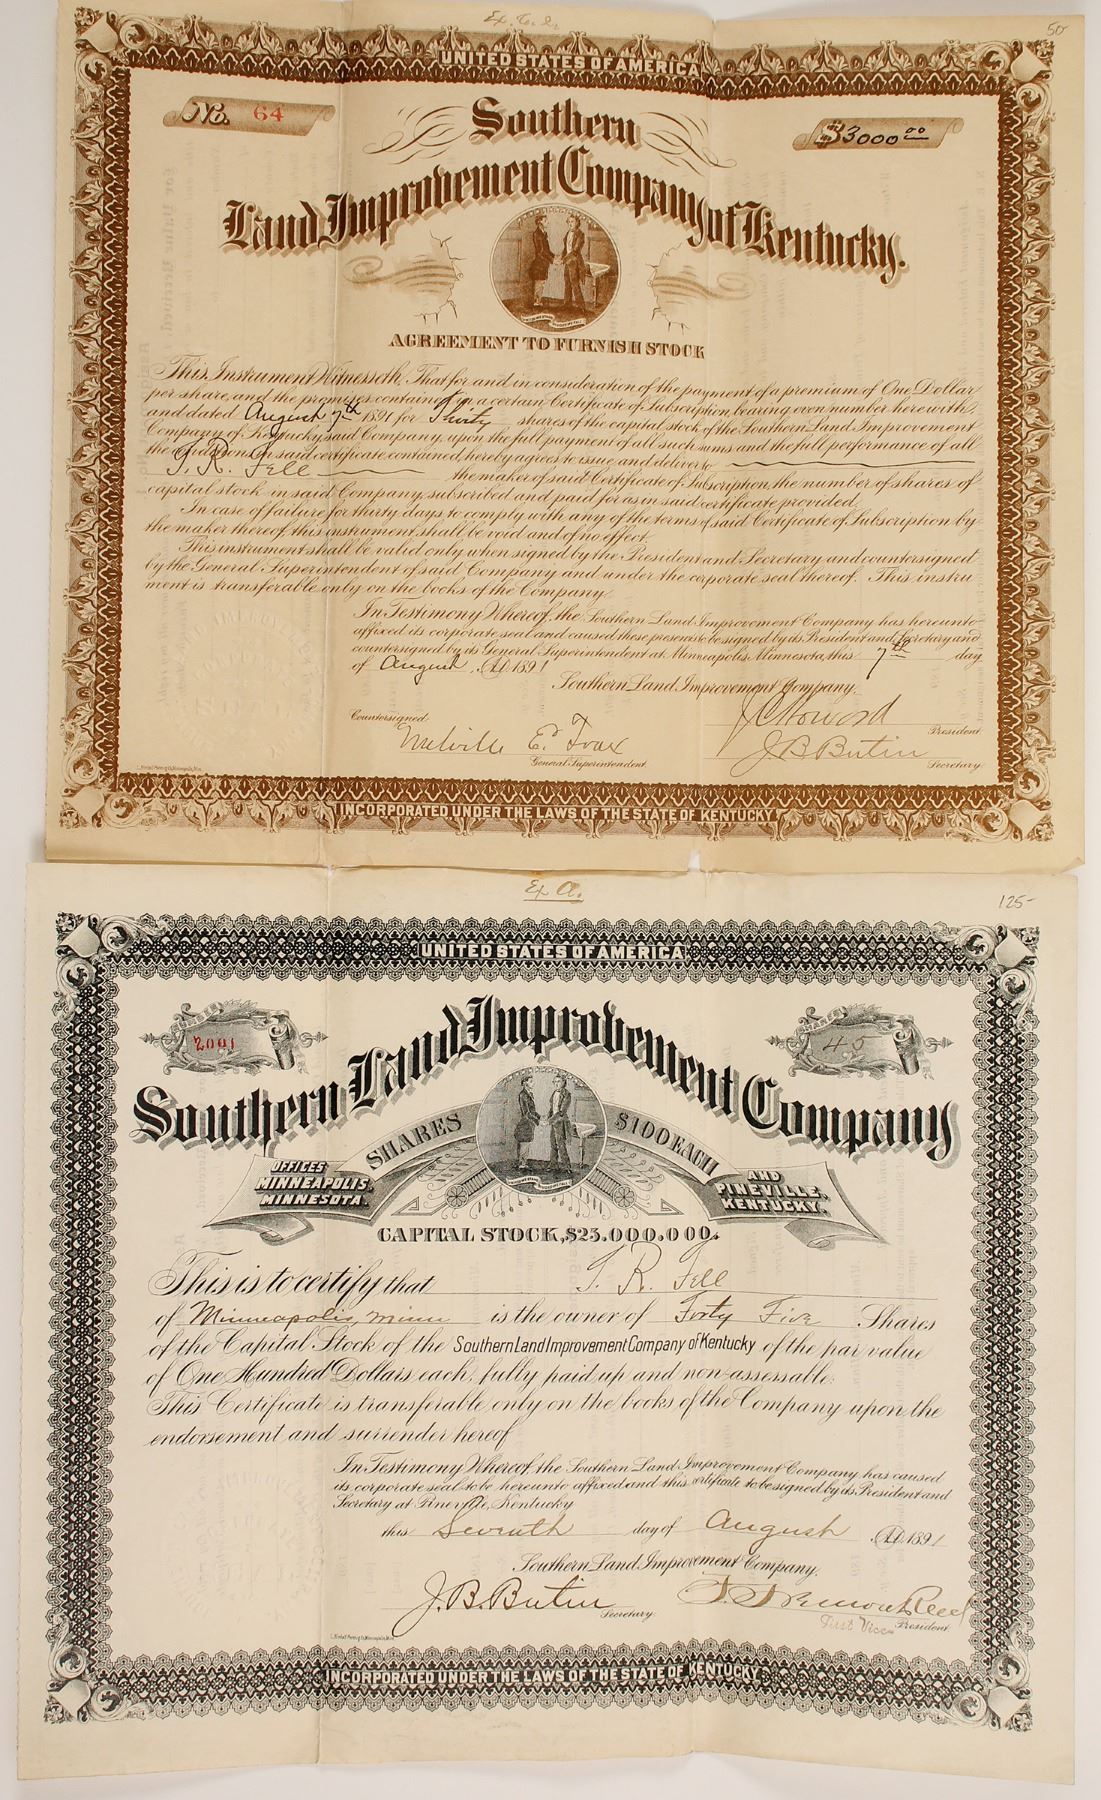 Ex. C. 2.
50-
UNITED STATES OF AMERICA
No. 64
$3000.00
Southern
Land Improvement Company of Kentucky.
AGREEMENT TO FURNISH STOCK
This Instrument Witnesseth, That for and in consideration of the payment of a premium of One Dollar
per share, and the promises contained in a certain Certificate of Subscription bearing even number herewith
and dated August 7th 1891 for Thirty shares of the capital stock of the Southern Land Improvement
Company of Kentucky, said Company, upon the full payment of all such sums and the full performance of all
the conditions in said certificate contained, hereby agrees to issue and deliver to
T. R. Fell the maker of said Certificate of Subscription, the number of shares of
capital stock in said Company, subscribed and paid for as in said certificate provided.
In case of failure for thirty days to comply with any of the terms of said Certificate of Subscription by
the maker thereof, this instrument shall be void and of no effect.
This instrument shall be valid only when signed by the President and Secretary and countersigned
by the General Superintendent of said Company and under the corporate seal thereof. This instru
ment is transferable only on the books of the Company.
In Testimony Whereof, the Southern Land Improvement Company has hereunto
affixed its corporate seal and caused these presents to be signed by its President and Secretary and
countersigned by its General Superintendent at Minneapolis Minnesota, this 7th day
of August A.D. 1891
Southern Land Improvement Company.
J C Howard
President
Countersigned
Melville E. Trax
General Superintendent
J. B. Butin
Secretary
INCORPORATED UNDER THE LAWS OF THE STATE OF KENTUCKY
Ex A.
125-
UNITED STATES OF AMERICA
2001
45
Southern Land Improvement Company
SHARES $100 EACH
OFFICES
MINNEAPOLIS,
MINNESOTA.
AND
PINEVILLE,
KENTUCKY.
CAPITAL STOCK, $25.000.000.
This is to certify that T. R. Fell
of Minneapolis, Minn is the owner of Forty Five Shares
of the Capital Stock of the Southern Land Improvement Company of Kentucky of the par value
of One Hundred Dollars each, fully paid up and non-assessable.
This Certificate is transferable only on the books of the Company upon the
endorsement and surrender hereof
In Testimony Whereof, the Southern Land Improvement Company has caused
its corporate seal to be hereunto affixed and this certificate to be signed by its President and
Secretary at Pineville, Kentucky
this Seventh day of August A.D. 1891
Southern Land Improvement Company.
J. B. Butin
Secretary
Fremont Reed
First Vice President
INCORPORATED UNDER THE LAWS OF THE STATE OF KENTUCKY